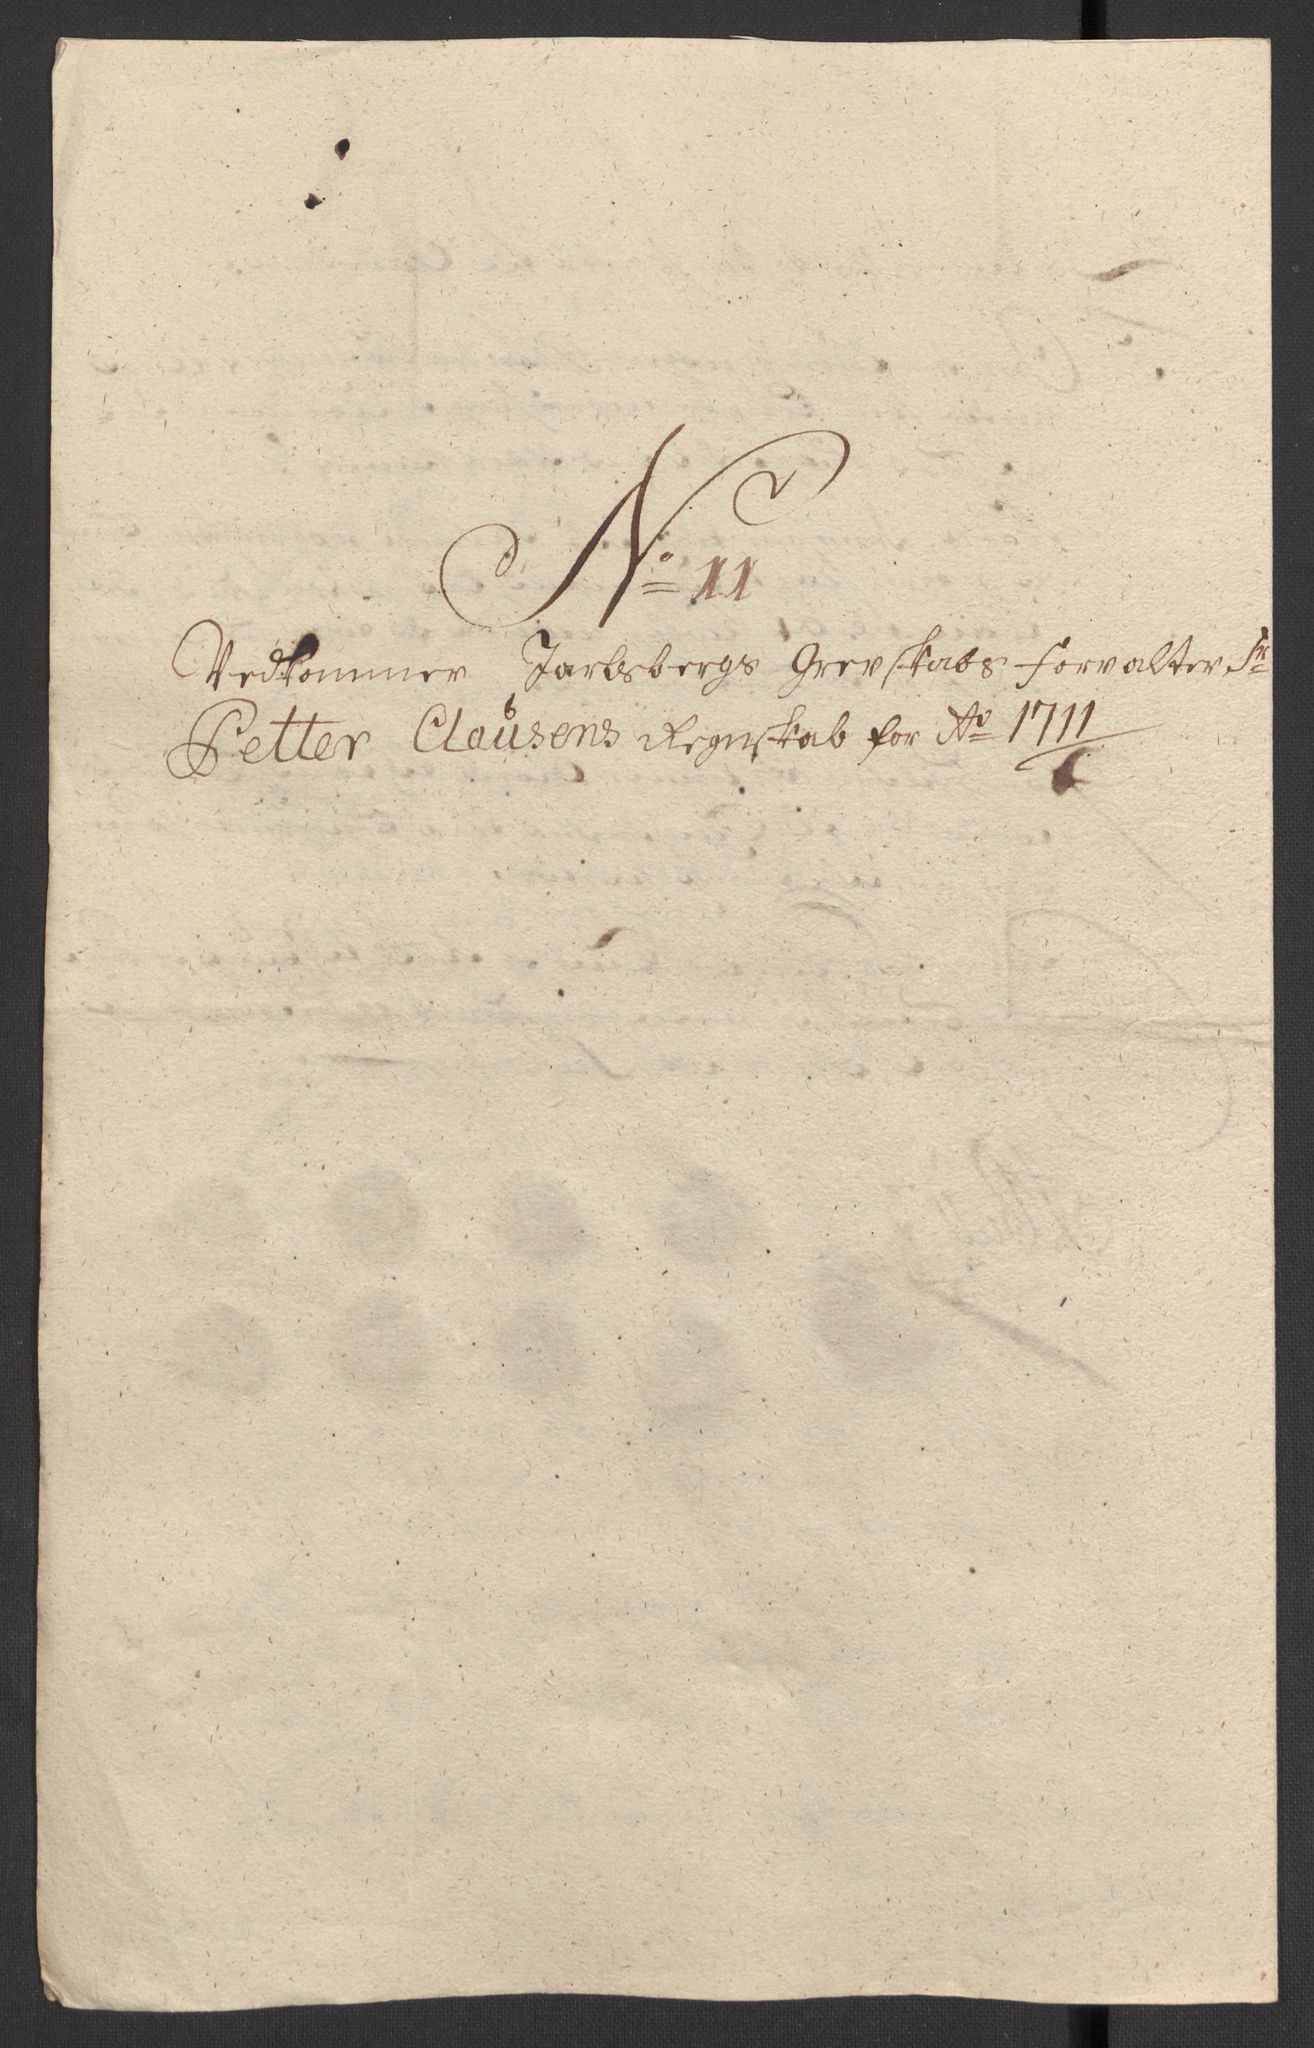 No 11
Vedkommer Jarlsbergs Grevskabs forvalter Sr
Petter Clausens Regnskab for Ao 1711